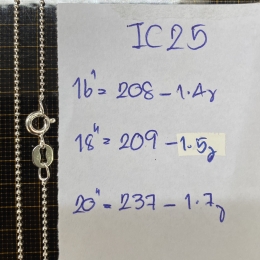 IC25
16" = 208 - 1.4g
18" = 209 - 1.5g
20" = 237 - 1.7g